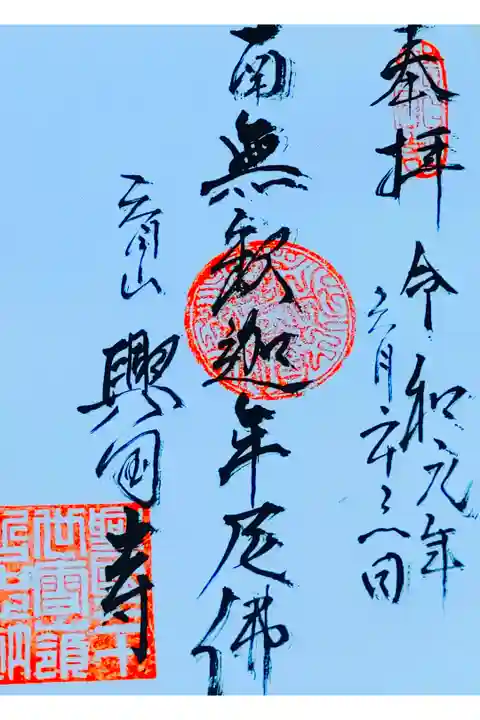 奉拝 令和元年
六月二十三日
南無釈迦牟尼佛
天目山
興国寺